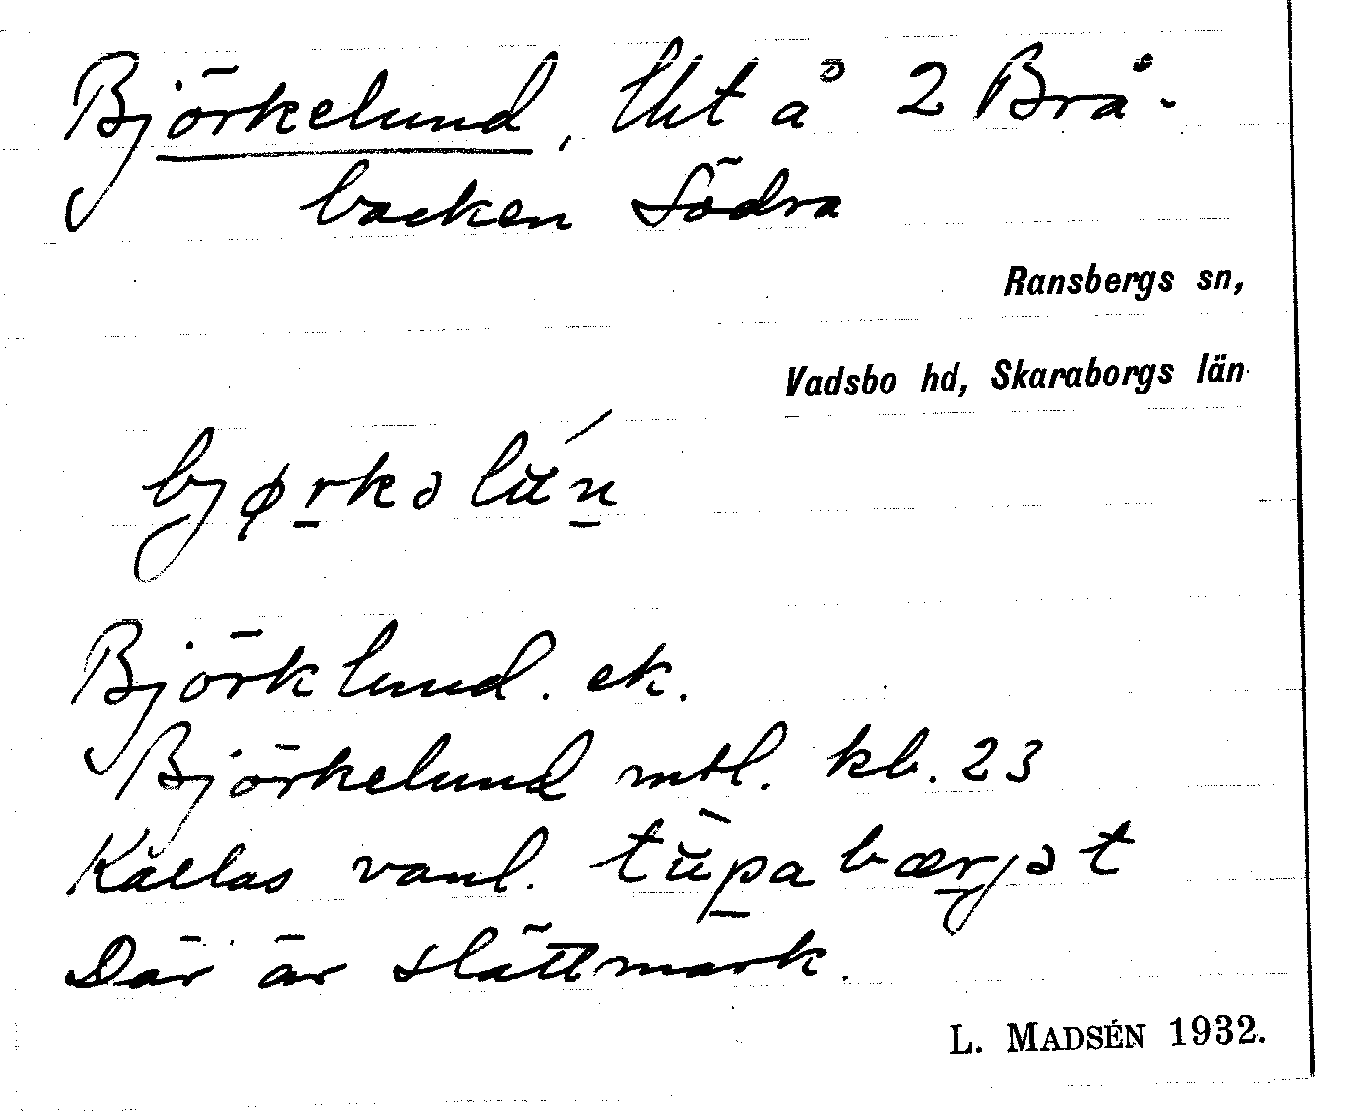 Björkelund, lht å 2 Brå-
backen Södra
Ransbergs sn,
Vadsbo hd, Skaraborgs län
bjørkəlún
Björklund. ek.
Björkelund mtl. kb. 23
Kallas vanl. tùpabærjət
Där är slättmark.
L. MADSÉN 1932.